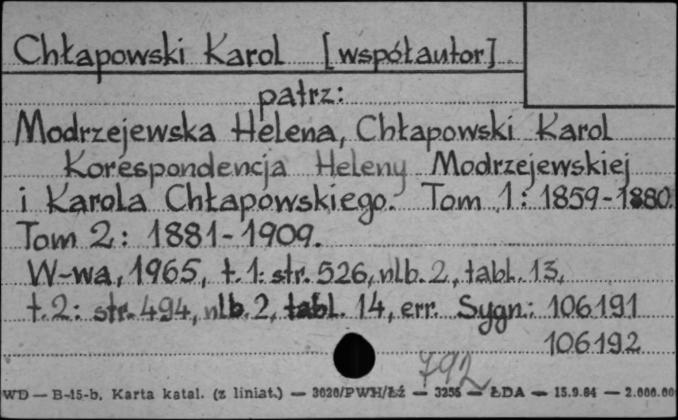 Chłapowski Karol [współautor]
patrz:
Modrzejewska Helena, Chłapowski Karol
Korespondencja Heleny Modrzejewskiej
i Karola Chłapowskiego. Tom 1: 1859-1880.
Tom 2: 1881-1909.
W-wa, 1965, t.1: str. 526, nlb. 2, tabl. 13,
t.2: str. 494, nlb. 2, tabl. 14, err. Sygn.: 106191
106192
792
WD — B-15-b. Karta katal. (z liniat.) — 3020/PWH/Łź — 3255 — ŁDA — 15.9.64 — 2.000.00